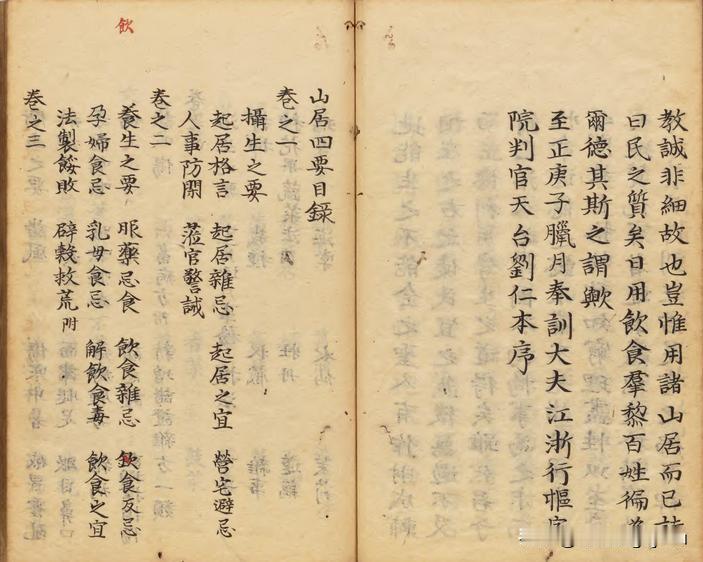 教誡非細故也豈惟用諸山居而已詩
曰民之質矣日用飲食羣黎百姓徧為
爾德其斯之謂歟
至正庚子臘月奉訓大夫江浙行樞密
院判官天台劉仁本序
飲
山居四要目錄
卷之一
攝生之要
起居格言 起居雜忌 起居之宜 營宅避忌
人事防閑 蒞官警誡
卷之二
養生之要 服藥忌食 飲食雜忌 飲食反忌
孕婦食忌 乳母食忌 解飲食毒 飲食之宜
法製餒敗 辟穀救荒附
卷之三